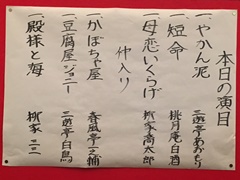 本日の演目
一、やかん泥 三遊亭あおもり
一、短命 桃月庵白酒
一、母恋いくらげ 柳家喬太郎
仲入り
一、かぼちゃ屋 春風亭一之輔
一、豆腐屋ジョニー 三遊亭白鳥
一、殿様と海 柳家三三